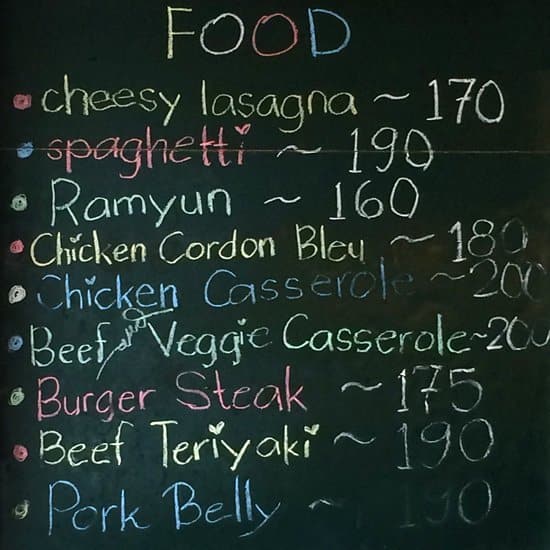 FOOD
cheesy lasagna ~ 170
spaghetti ~ 190
Ramyun ~ 160
Chicken Cordon Bleu ~ 180
Chicken Casserole ~ 200
Beef and Veggie Casserole ~ 200
Burger Steak ~ 175
Beef Teriyaki ~ 190
Pork Belly ~ 190